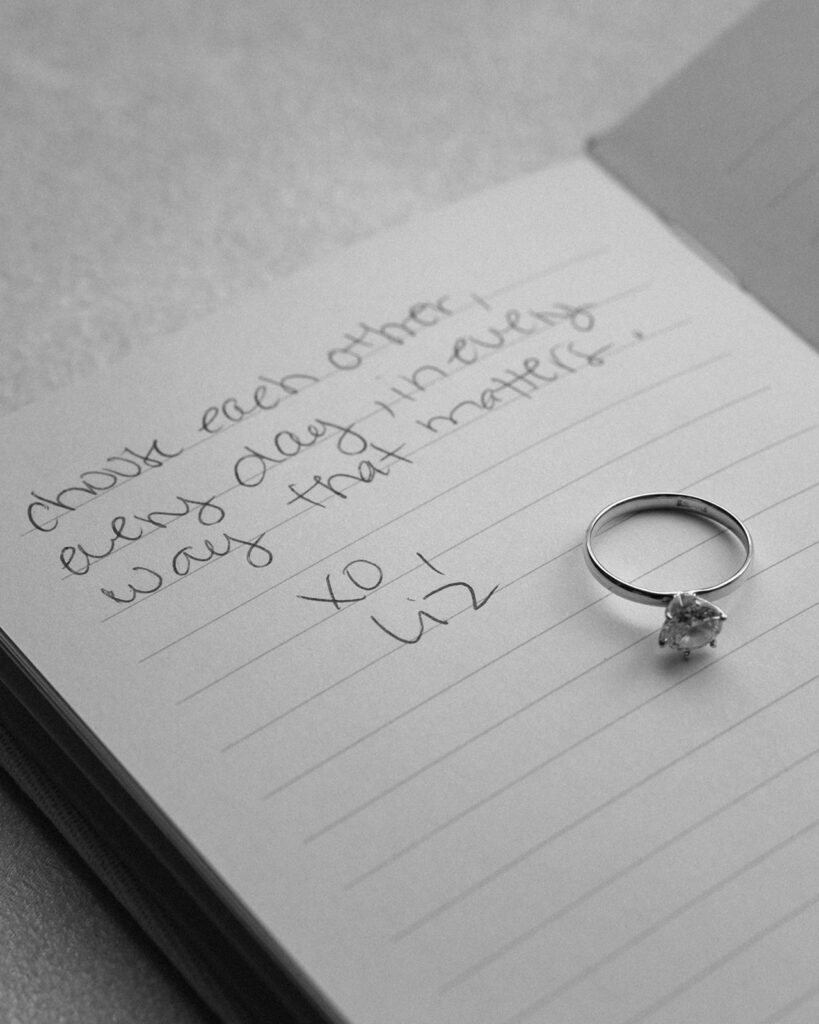 choose each other,
every day, in every
way that matters.
XO,
Liz